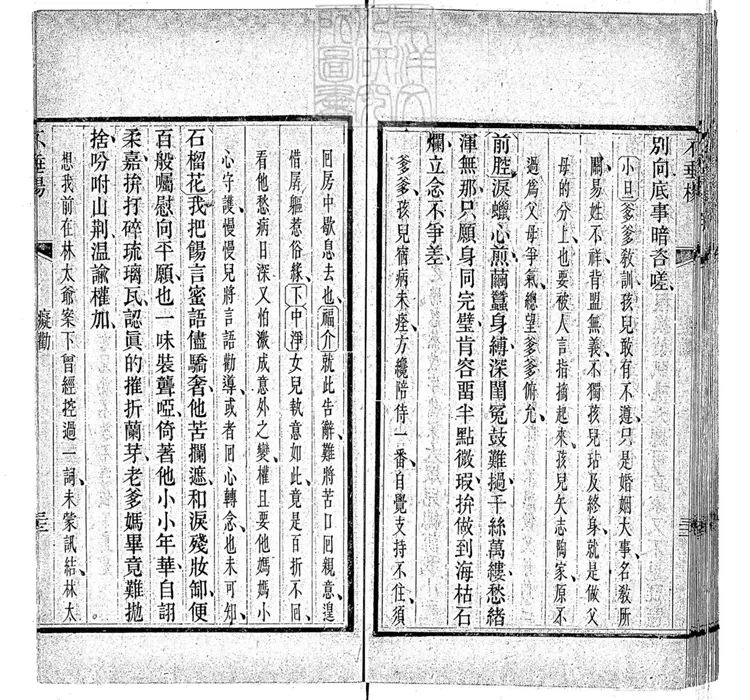 別向底事暗咨嗟
小旦爹爹敎訓孩兒敢有不遵只是婚姻大事名敎所
關易姓不祥背盟無義不獨孩兒玷及終身就是做父
母的分上也要被人言指摘起來孩兒矢志陶家原不
過爲父母爭氣總望爹爹俯允
前腔淚蠟心煎繭蠶身縛深閨冤鼓難撾千絲萬縷愁緒
渾無那只願身同完璧肯容畱半點微瑕拚做到海枯石
爛立念不爭差
爹爹孩兒宿病未痊方纔陪侍一番自覺支持不住須
回房中歇息去也福介就此告辭難將苦口回親意遑
惜孱軀惹俗緣下中淨女兒執意如此竟是百折不回
看他愁病日深又怕激成意外之變權且要他媽媽小
心守護慢慢兒將言語勸導或者回心轉念也未可知
石榴花我把餳言蜜語儘驕奢他苦攔遮和淚殘妝卸便
百般囑慰向平願也一味裝聾啞倚著他小小年華自詡
柔嘉拚打碎琉璃瓦認眞的摧折蘭芽老爹媽畢竟難拋
捨吩咐山荆温諭權加
想我前在林太爺案下曾經控過一詞未蒙訊結林太
癡勸